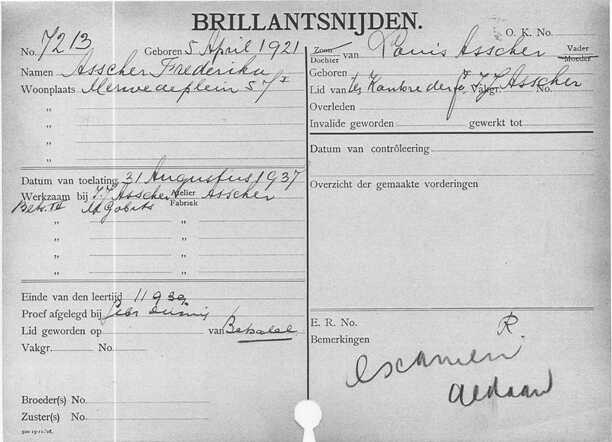 BRILLANTSNIJDEN.
No. 7213 Geboren 5 April 1921
Namen Asscher Frederika
Woonplaats Merwedeplein 57 I
"
"
"
"
Datum van toelating 31 Augustus 1937
Werkzaam bij J.J. Asscher Atelier Fabriek Asscher
" "
" "
" "
" "
Einde van den leertijd
Proef afgelegd bij
Lid geworden op van Betsalel
Vakgr. No.
Broeder(s) No.
Zuster(s) No.
O. K. No.
Zoon Dochter van Louis Asscher Vader Moeder
Geboren
Lid van Vakgr. Asscher No.
Overleden
Invalide geworden gewerkt tot
Datum van contrôleering
Overzicht der gemaakte vorderingen
E. R. No. R.
Bemerkingen
examen
gedaan